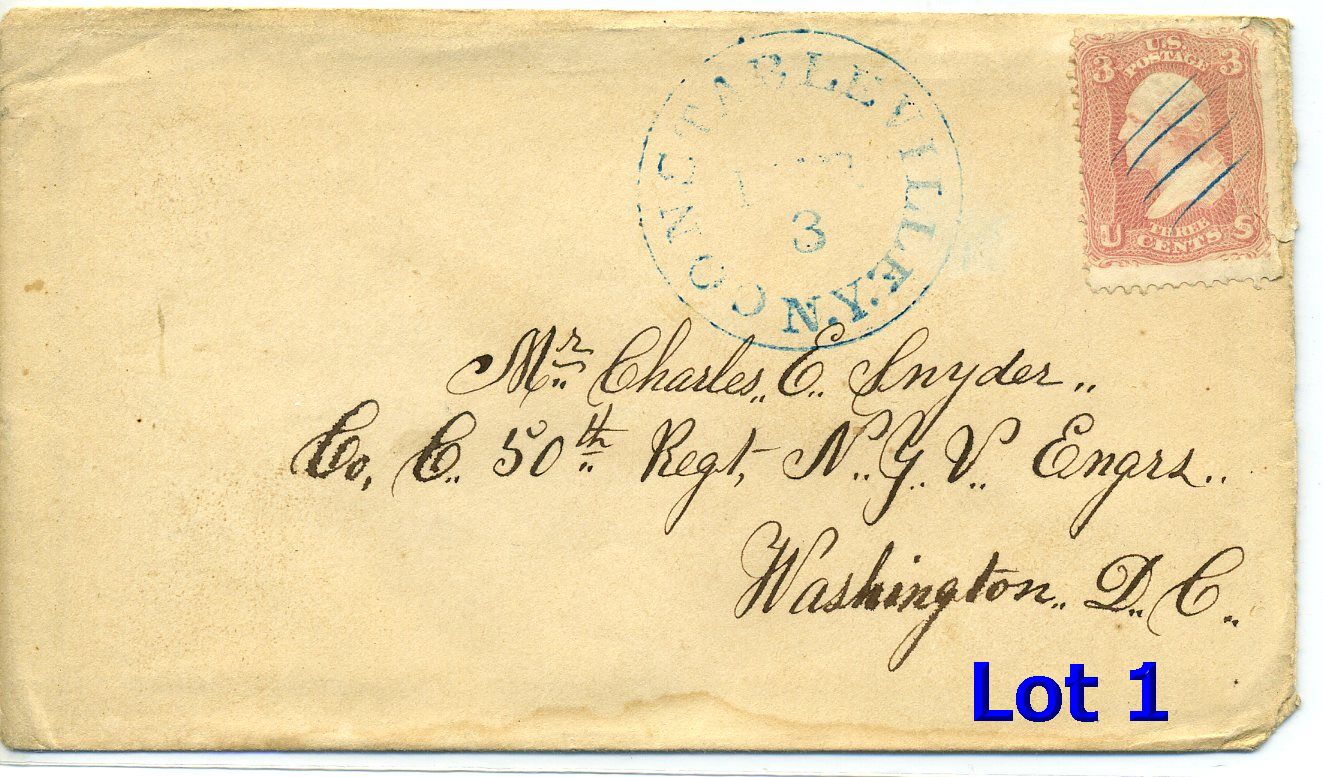 CONSTABLEVILLE.N.Y.
3
U.S.
POSTAGE
3 3
U THREE S
CENTS
Mr. Charles, E. Snyder..
Co, C. 50th Regt, N. Y. V. Engrs..
Washington.. D. C..
Lot 1